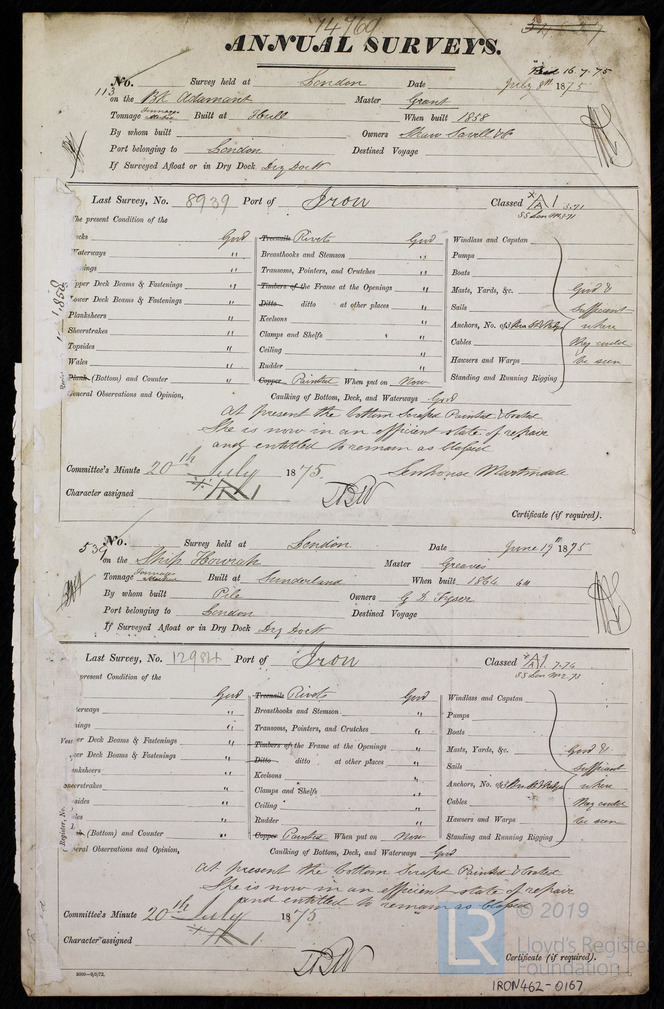 14760
ANNUAL SURVEYS.
Recd 16.7.75
113 No. Survey held at London Date July 8th 1875
on the Bk Adamant Master Grant
Tonnage Built at Hull When built 1858
By whom built Owners Shaw Savill & Co
Port belonging to London Destined Voyage
If Surveyed Afloat or in Dry Dock Dry Dock
Last Survey, No. 8939 Port of Iron Classed A 1 5.71
SS Lon 71
The present Condition of the
Decks Good Treenails Rivets Good Windlass and Capstan
Waterways " Breasthooks and Stemson " Pumps
" Transoms, Pointers, and Crutches " Boats
Upper Deck Beams & Fastenings " Timbers of the Frame at the Openings " Masts, Yards, &c. Good &
Lower Deck Beams & Fastenings " Ditto ditto at other places " Sails sufficient
Planksheers " Keelsons " Anchors, No. of where
Sheerstrakes " Clamps and Shelfs " Cables they could
Topsides " Ceiling " Hawsers and Warps be seen
Wales " Rudder " Standing and Running Rigging
Plank (Bottom) and Counter " Copper Painted When put on Now
General Observations and Opinion, Caulking of Bottom, Deck, and Waterways Good
At present the bottom Scraped Painted & Coated
She is now in an efficient state of repair
and entitled to remain as Classed
Committee's Minute 20th July 1875. Senhouse Martindale
Character assigned A 1
Certificate (if required).
539 No. Survey held at London Date June 19th 1875
on the Ship Howrah Master Greaves
Tonnage Built at Sunderland When built 1864
By whom built Pile Owners G D Tyser
Port belonging to London Destined Voyage
If Surveyed Afloat or in Dry Dock Dry Dock
Last Survey, No. 12984 Port of Iron Classed A 1 7.74
SS Lon No 2.73
present Condition of the
Good Treenails Rivets Good Windlass and Capstan
erways " Breasthooks and Stemson " Pumps
" Transoms, Pointers, and Crutches " Boats
er Deck Beams & Fastenings " Timbers of the Frame at the Openings " Masts, Yards, &c. Good &
er Deck Beams & Fastenings " Ditto ditto at other places " Sails sufficient
nksheers " Keelsons " Anchors, No. where
eerstrakes " Clamps and Shelfs " Cables they could
sides " Ceiling " Hawsers and Warps be seen
les " Rudder " Standing and Running Rigging
(Bottom) and Counter " Copper Painted When put on Now
eral Observations and Opinion, Caulking of Bottom, Deck, and Waterways Good
At present the bottom Scraped Painted & Coated
She is now in an efficient state of repair
and entitled to remain as Classed
Committee's Minute 20th July 1875
Character assigned A 1
Certificate (if required).
© 2019
LR Lloyd's Register
Foundation
IRON462-0167